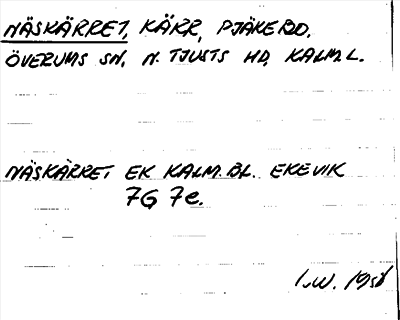 NÄSKÄRRET, KÄRR, PJÄKEBO.
ÖVERUMS SN, N. TJUSTS HD, KALM.L.
NÄSKÄRRET EK KALM.BL. EKEVIK
7G 7e.
I.W. 1958